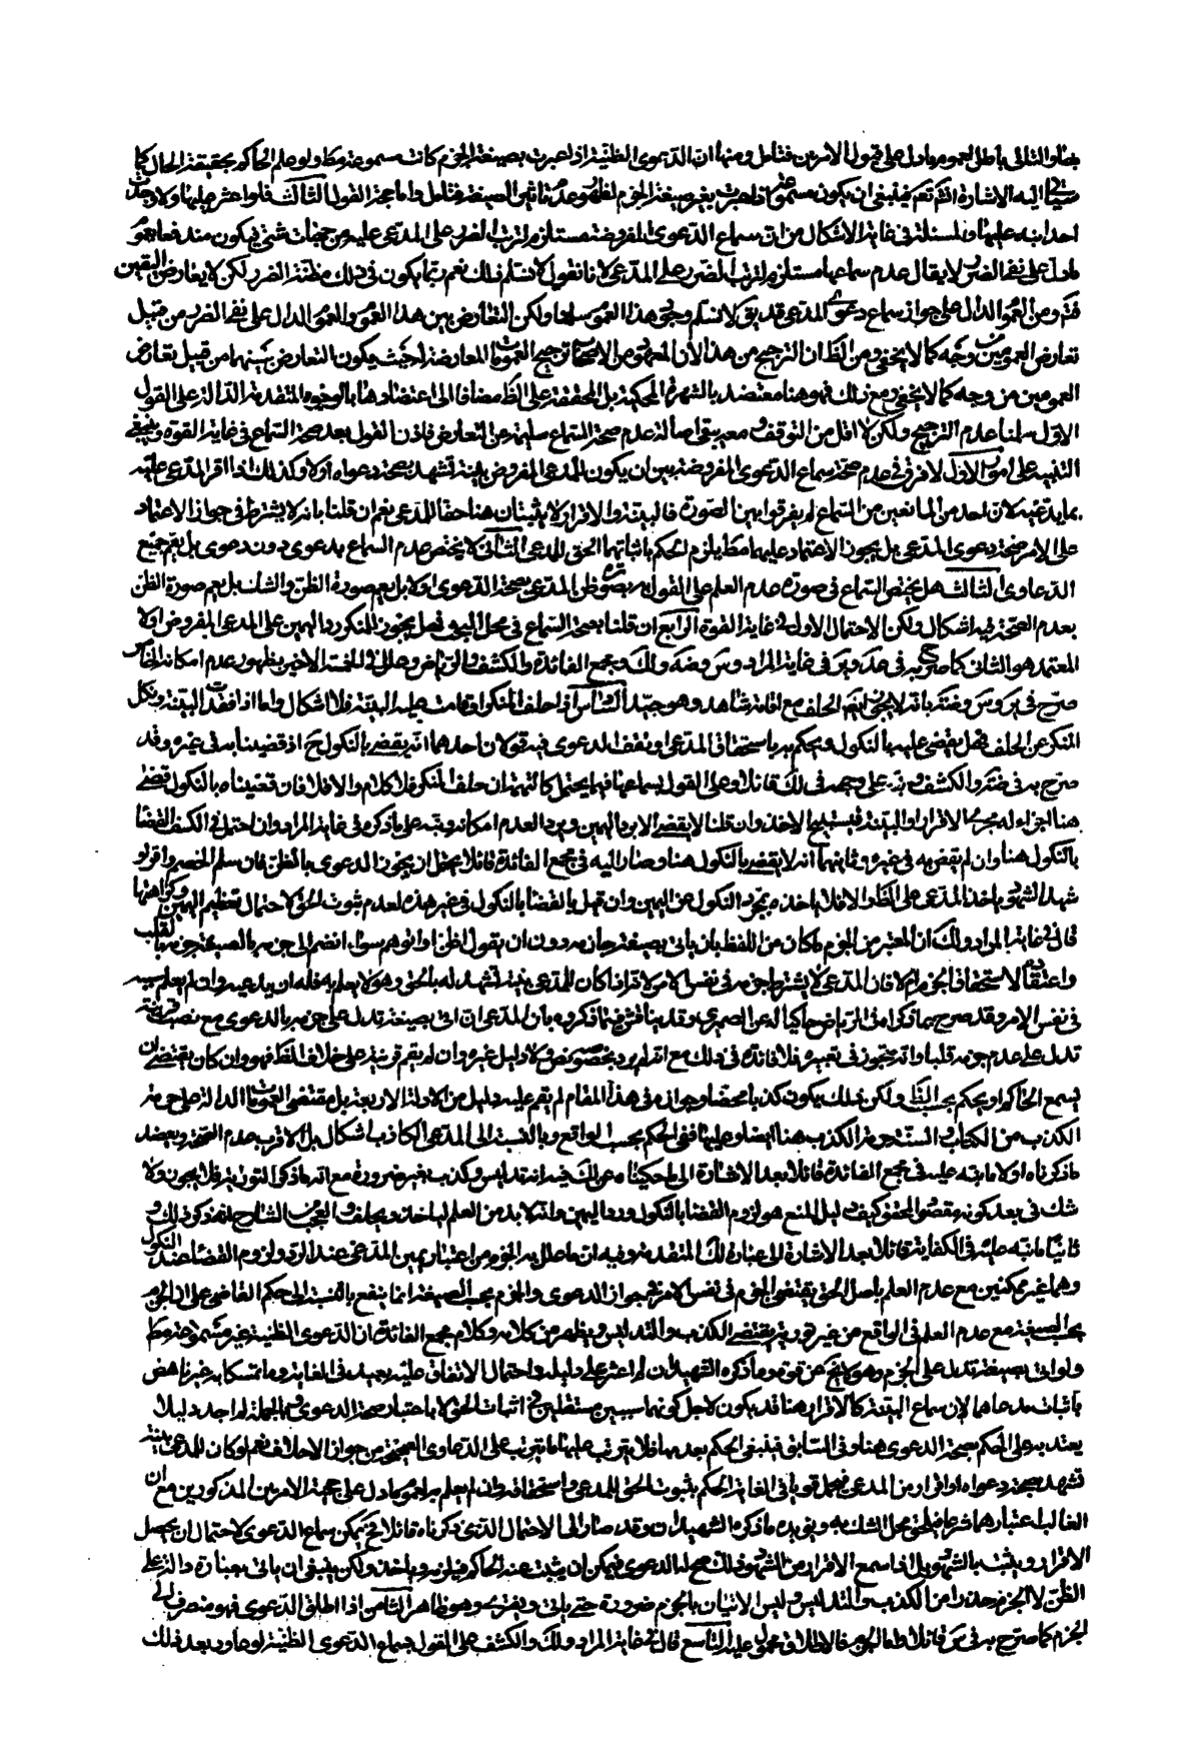 بطا والتالى باطل لعموم ما دل على قبول الامرين فتامل ومنها ان الدعوى الظنية اذا عبرت بصيغة الجزم كانت مسموعة مط ولو علم الحاكم بحقيقة الحال كما
اليه الاشارة انتم فينبغي ان يكون مسموعة اذا عبرت بغير صيغة الجزم لظهور عدم تاثير الصيغة فتامل واما حجة القول الثالث فلم اعثر عليها ولا وجدت
احدا نبه عليها والمسئلة في غاية الاشكال من ان سماع الدعوى المفروضة مستلزم لترتب الضرر على المدعى عليه من جهات شتى فيكون مندفعا بعموم
ما دل على نفي الضرر لا يقال عدم سماعها مستلزم لترتب الضرر على المدعى لانا نقول لا نسلم ذلك نعم ربما يكون في ذلك مظنة الضرر لكن لا يعارض اليقين
فتم ومن العموم الدال على جواز سماع دعوى المدعى قد يق لا نسلم وجود هذا العموم سلمنا ولكن التعارض بين هذا العموم والعموم الدال على نفي الضرر من قبيل
تعارض العمومين من وجه كما لا يخفى ومن الظ ان الترجيح مع هذا لان المعهود من الاصحاب ترجيح العمومات المعارضة حيث يكون التعارض بينهما من قبيل تعارض
العمومين من وجه كما لا يخفى ومع ذلك فهو هنا معتضد بالشهرة المحكية بل المحققة على الظ مضافا الى اعتضادها بالوجوه المتقدمة الدالة على القول
الاول سلمنا عدم الترجيح ولكن لا اقل من التوقف ومعه يبقى اصالة عدم صحة السماع سليمة عن المعارض فاذن القول بعد صحة السماع في غاية القوة وينبغي
التنبيه على امور الاول لا فرق في عدم صحة سماع الدعوى المفروضة بين ان يكون للمدعى المفروض بينة تشهد بصحة دعواه او لا وكذلك اذا اقر المدعى عليه
بما يدعيه لان احد من المانعين من السماع لم يفرقوا بين الصورة فالبينة والاقرار لا يثبتان هنا حقا للمدعى نعم ان قلنا بانه لا يشترط في جواز الاعتماد
على الامر صحة دعوى المدعى بل يجوز الاعتماد عليهما مط يلزم الحكم باثباتهما الحق للمدعى الثاني لا يختص عدم السماع بدعوى دون دعوى بل يعم جميع
الدعاوى الثالث هل يختص السماع في صورة عدم العلم على القول به بصورة ظن المدعى بصحة الدعوى او لا بل يعم صورة الظن والشك بل يعم صورة الظن
بعدم الصحة فيه اشكال ولكن الاحتمال الاول في غاية القوة الرابع ان قلنا بصحة السماع في محل البحث فهل يجوز للمنكر رد اليمين على المدعى المفروض او لا
المعتمد هو الثاني كما صرح به في عد وير في غاية المراد وس وضه ولك ومجمع الفائدة والكشف والرياض وعلل في الاخير بظهور عدم امكانه الخامس
صرح في ير وس وضه بانه لا يجوز ايضا الحلف مع اقامة شاهد وهو جيد السادس اذا حلف المنكر او قامت عليه البينة فلا اشكال واما اذا فقدت البينة ونكل
المنكر عن الحلف فهل يقضى عليه بالنكول ويحكم به باستحقاق المدعى او تقف الدعوى فيه قولان احدهما انه يقضى بالنكول ح اذ قضينا به في غيره وقد
صرح به في ضه والكشف ونبه على وجهه في لك قائلا وعلى القول بسماعها فيما يحتمل كالتهمة ان حلف المنكر فلا كلام والا فلا فان قضيناه بالنكول قضى
هنا اجراء له مجرى الاقرار او البينة فيستبيح الاخذ وان قلنا لا يقضى الا برد اليمين ويرد العدم امكانه ونبه على ما ذكره في غاية المراد وان احتمل في الكشف القضاء
بالنكول هنا وان لم يقض به في غيره وثانيهما انه لا يقضى بالنكول هنا وصار اليه في مجمع الفائدة قائلا يحتمل ان يجوز الدعوى بالظن فان سلم الخصم واقر او
شهد الشهود ياخذ المدعى على الظ والا فلا ياخذه بمجرد النكول عن اليمين وان قيل بالقضاء بالنكول في غير هذه لعدم ثبوت الحق لاحتمال تعظيم اليمين وكراهتها
قال في غاية المراد ولك ان المعتبر من الجزم ما كان من اللفظ بان ياتى بصيغة جازمة دون ان يقول اظن او اتوهم سواء انضم الى جزمه بالصيغة جزمه بالقلب
واعتقاده الاستحقاق الجزم ام لا فان المدعى لا يشترط جزمه في نفس الامر لانه اذا كان للمدعى بينة تشهد له بالحق وهو لا يعلم به فله ان يدعيه وان لم يعلم سببه
في نفس الامر وقد صرح بما ذكراه في الرياض حاكيا له عن الصيمرى وقد يناقش فيما ذكروه بان المدعى ان اتى بصيغة تدل على جزمه بالدعوى مع نصب قرينة
تدل على عدم جزمه قلبا وانه متجوز في تعبيره فلا فائدة في ذلك مع انه لم يرد بخصوصه نص ولا دليل غيره وان لم يقم قرينة على خلاف الظ فهو وان كان يقتضى ان
يسمع الحاكم او يحكم بحسب الظ ولكن ذلك يكون كذبا محضا وجوازه في هذا المقام لم يقم عليه دليل من الادلة الاربعة بل مقتضى العمومات الدالة على حرمة
الكذب من الكتاب والسنة حرمة الكذب هنا ايضا وعليها ففى الحكم بحسب الواقع وبالنسبة الى المدعى الكاذب اشكال بل الاقرب عدم الصحة ويعضد
ما ذكرناه اولا ما نبه عليه في مجمع الفائدة قائلا بعد الاشارة الى ما حكيناه عن لك فيه انه تدليس وكذب بغير ضرورة مع انه ما ذكر التورية فلا يجوز ولا
شك في بعد كونه مقصود المحقق كيف ودليل المنع هو لزوم القضاء بالنكول ورد اليمين وانه لا بد من العلم لياخذ ويحلف والعجب من الشارح انه ذكر ذلك و
ثانيا ما نبه عليه في الكفاية قائلا بعد الاشارة الى عبارة لك المتقدمة وفيه ان ما علل به الجزم من اعتبار يمين المدعى عند الرد ولزوم القضاء عند النكول
وهما غير ممكنين مع عدم العلم باصل الحق يقتضى الجزم في نفس الامر في جواز الدعوى والجزم بحسب الصيغة انما ينفع بالنسبة الى حكم القاضى على ان الجزم
بحسب الصيغة مع عدم العلم في الواقع من غير تورية يقتضى الكذب والتدليس ويظهر من كلامه وكلام مجمع الفائدة ان الدعوى الظنية غير مسموعة مط
ولو اتى بصيغة تدل على الجزم وهو لا يخ عن قوة وما ذكره الشهيدان لم اعثر على دليله واحتمال الاتفاق عليه بعيد في الغاية وما تمسكا به غير ناهض
باثبات مدعاهما لان سماع البينة كالاقرار هنا قد يكون لاجل كونهما سببين مستقلين في اثبات الحق لا باعتبار صحة الدعوى وبالجملة لم اجد دليلا
يعتد به على الحكم بصحة الدعوى هنا وفي السابق فينبغى الحكم بعدمها فلا يترتب عليها ما يترتب على الدعاوى الصحيحة من جواز الاحلاف نعم لو كان للمدعى بينة
تشهد بصحة دعواه او اقرار من المدعى فيحتمل قويا في الغاية الحكم بثبوت الحق للمدعى واستحقاقه وان لم يعلم به لعموم ما دل على حجية الامرين المذكورين مع ان
الغالب اعتبارهما شرعا فيلحق محل الشك به ويؤيده ما ذكره الشهيدان وقد صار الى الاحتمال الذى ذكرناه قائلا نعم يمكن سماع الدعوى لاحتمال ان يحصل
الاقرار ويثبت بالشهود بل اذا سمع الاقرار من الشهود ذلك يصح له الدعوى فيمكن ان يثبت عند الحاكم فيلزمه وياخذ ولكن ينبغى ان ياتى بعبارة دالة على
الظن لا الجزم حذرا من الكذب والتدليس وليس الاتيان بالجزم ضرورة حتى ياتى ويغر به وهو ظاهر الثامن اذا اطلق الدعوى فهو منصرف الى
الجزم كما صرح به في س قائلا وظاهره الجزم فالاطلاق محمول عليه التاسع قال في غاية المراد ولك والكشف على القول بسماع الدعوى الظنية لو عاود بعد ذلك